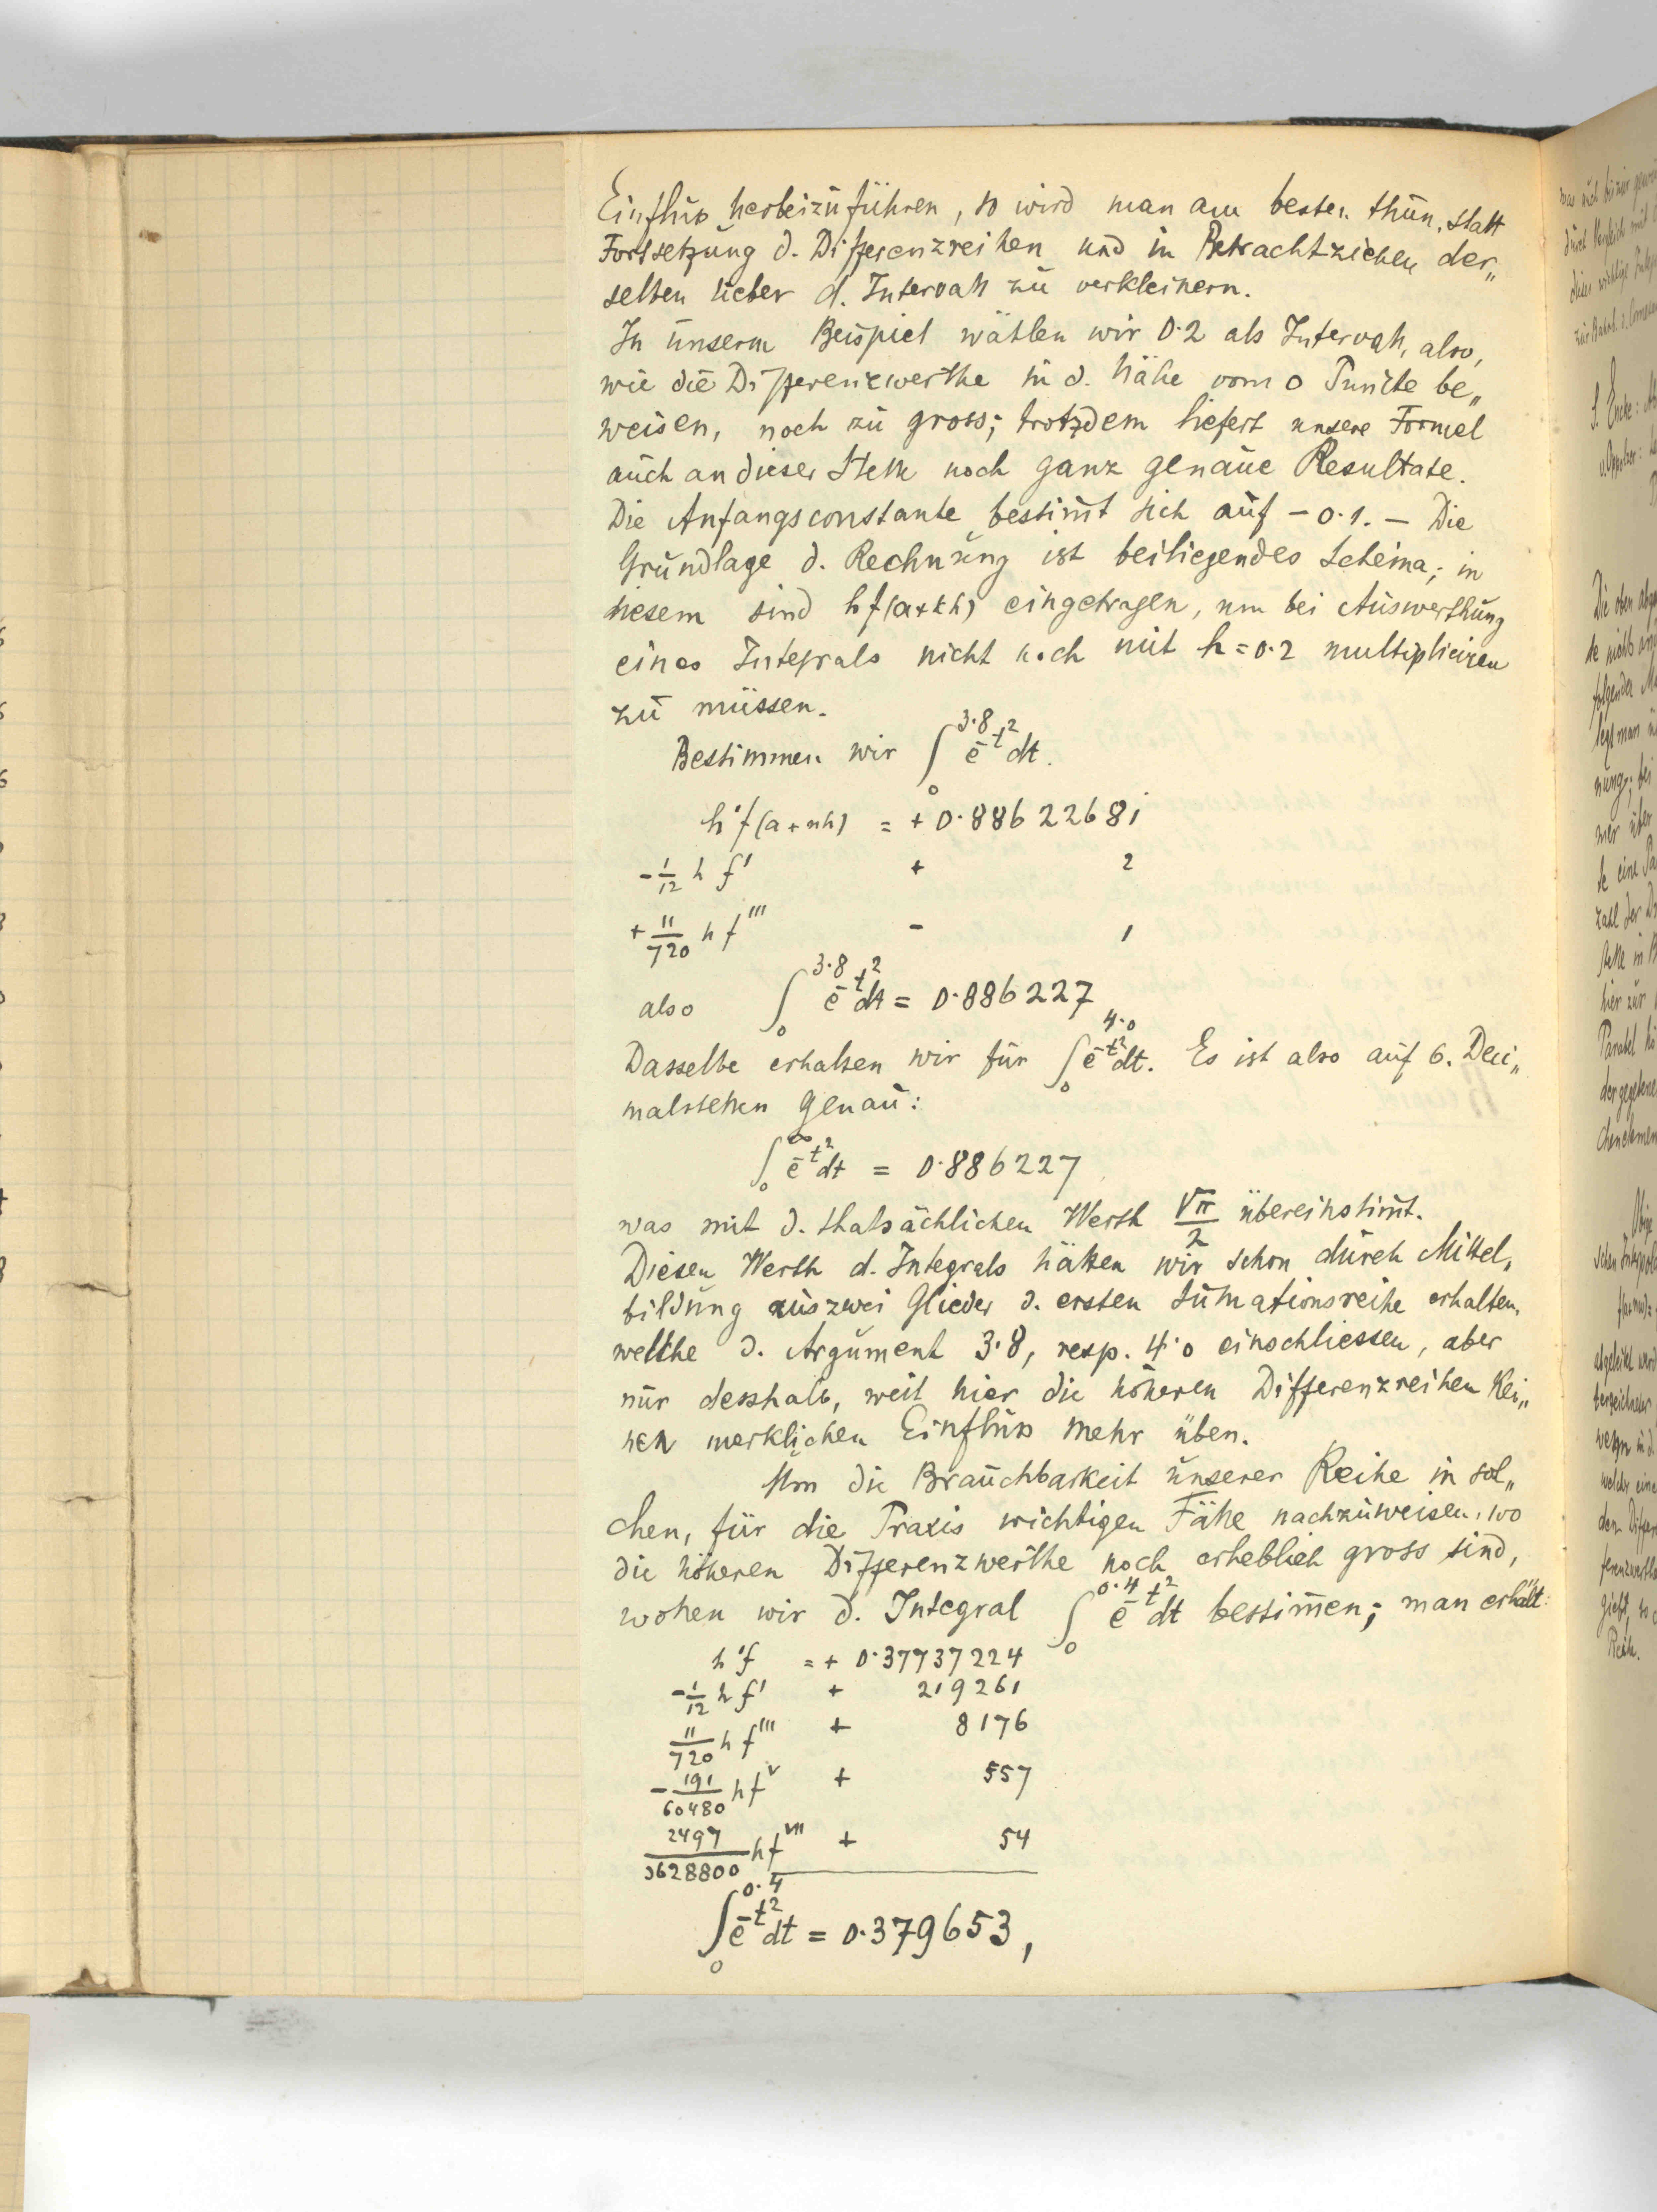 Einfluss herbeizuführen, so wird man am besten thun, statt
Fortsetzung d. Differenzreihen und in Betrachtziehen der„
selben lieber d. Intervall zu verkleinern.
In unserm Beispiel wählen wir 0.2 als Intervall, also,
wie die Differenzwerthe in d. Nähe vom 0 Puncte be„
weisen, noch zu gross; trotzdem liefert unsere Formel
auch an dieser Stelle noch ganz genaue Resultate.
Die Anfangsconstante bestimt sich auf – 0.1. – Die
Grundlage d. Rechnung ist beiliegendes Schema; in
diesem sind hf(a+kh) eingetragen, um bei Auswerthung
eines Integrals nicht noch mit h = 0.2 multipliciren
zu müssen.
Bestimmen wir ∫₀^3.8 e^-t² dt.
h'f(a+nh) = + 0.88622681
- 1/12 h f' + 2
+ 11/720 h f''' - 1
also ∫₀^3.8 e^-t² dt = 0.886227
Dasselbe erhalten wir für ∫₀^4.0 e^-t² dt. Es ist also auf 6. Deci„
malstellen genau:
∫₀^∞ e^-t² dt = 0.886227
was mit d. thatsächlichen Werth √π/2 übereinstimt.
Diesen Werth d. Integrals hätten wir schon durch Mittel„
bildung aus zwei Glieder d. ersten Sumationsreihe erhalten,
welche d. Argument 3.8, resp. 4.0 einschliessen, aber
nur desshalb, weil hier die höheren Differenzreihen kei„
nen merklichen Einfluss mehr üben.
Um die Brauchbarkeit unserer Reihe in sol„
chen, für die Praxis wichtigen Fälle nachzuweisen, wo
die höheren Differenzwerthe noch erheblich gross sind,
wollen wir d. Integral ∫₀^0.4 e^-t² dt bestimen; man erhält:
h'f = + 0.37737224
- 1/12 h f' + 219261
11/720 h f''' + 8176
- 191/60480 h f^V + 557
2497/3628800 h f^VII + 54
∫₀^0.4 e^-t² dt = 0.379653,